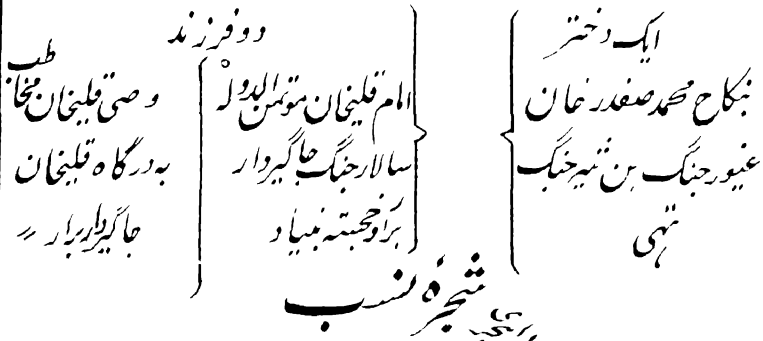 ایک دختر
نکاح محمد صفدر خان
غیور جنگ بن شیر جنگ
تہی
دو فرزند
امام قلیخان موتمن الدولہ
سالار جنگ جاگیردار
برار خجستہ بنیاد
وصتی قلیخان مخاطب
بہ درگاہ قلیخان
جاگیردار برار
شجرہ نسب